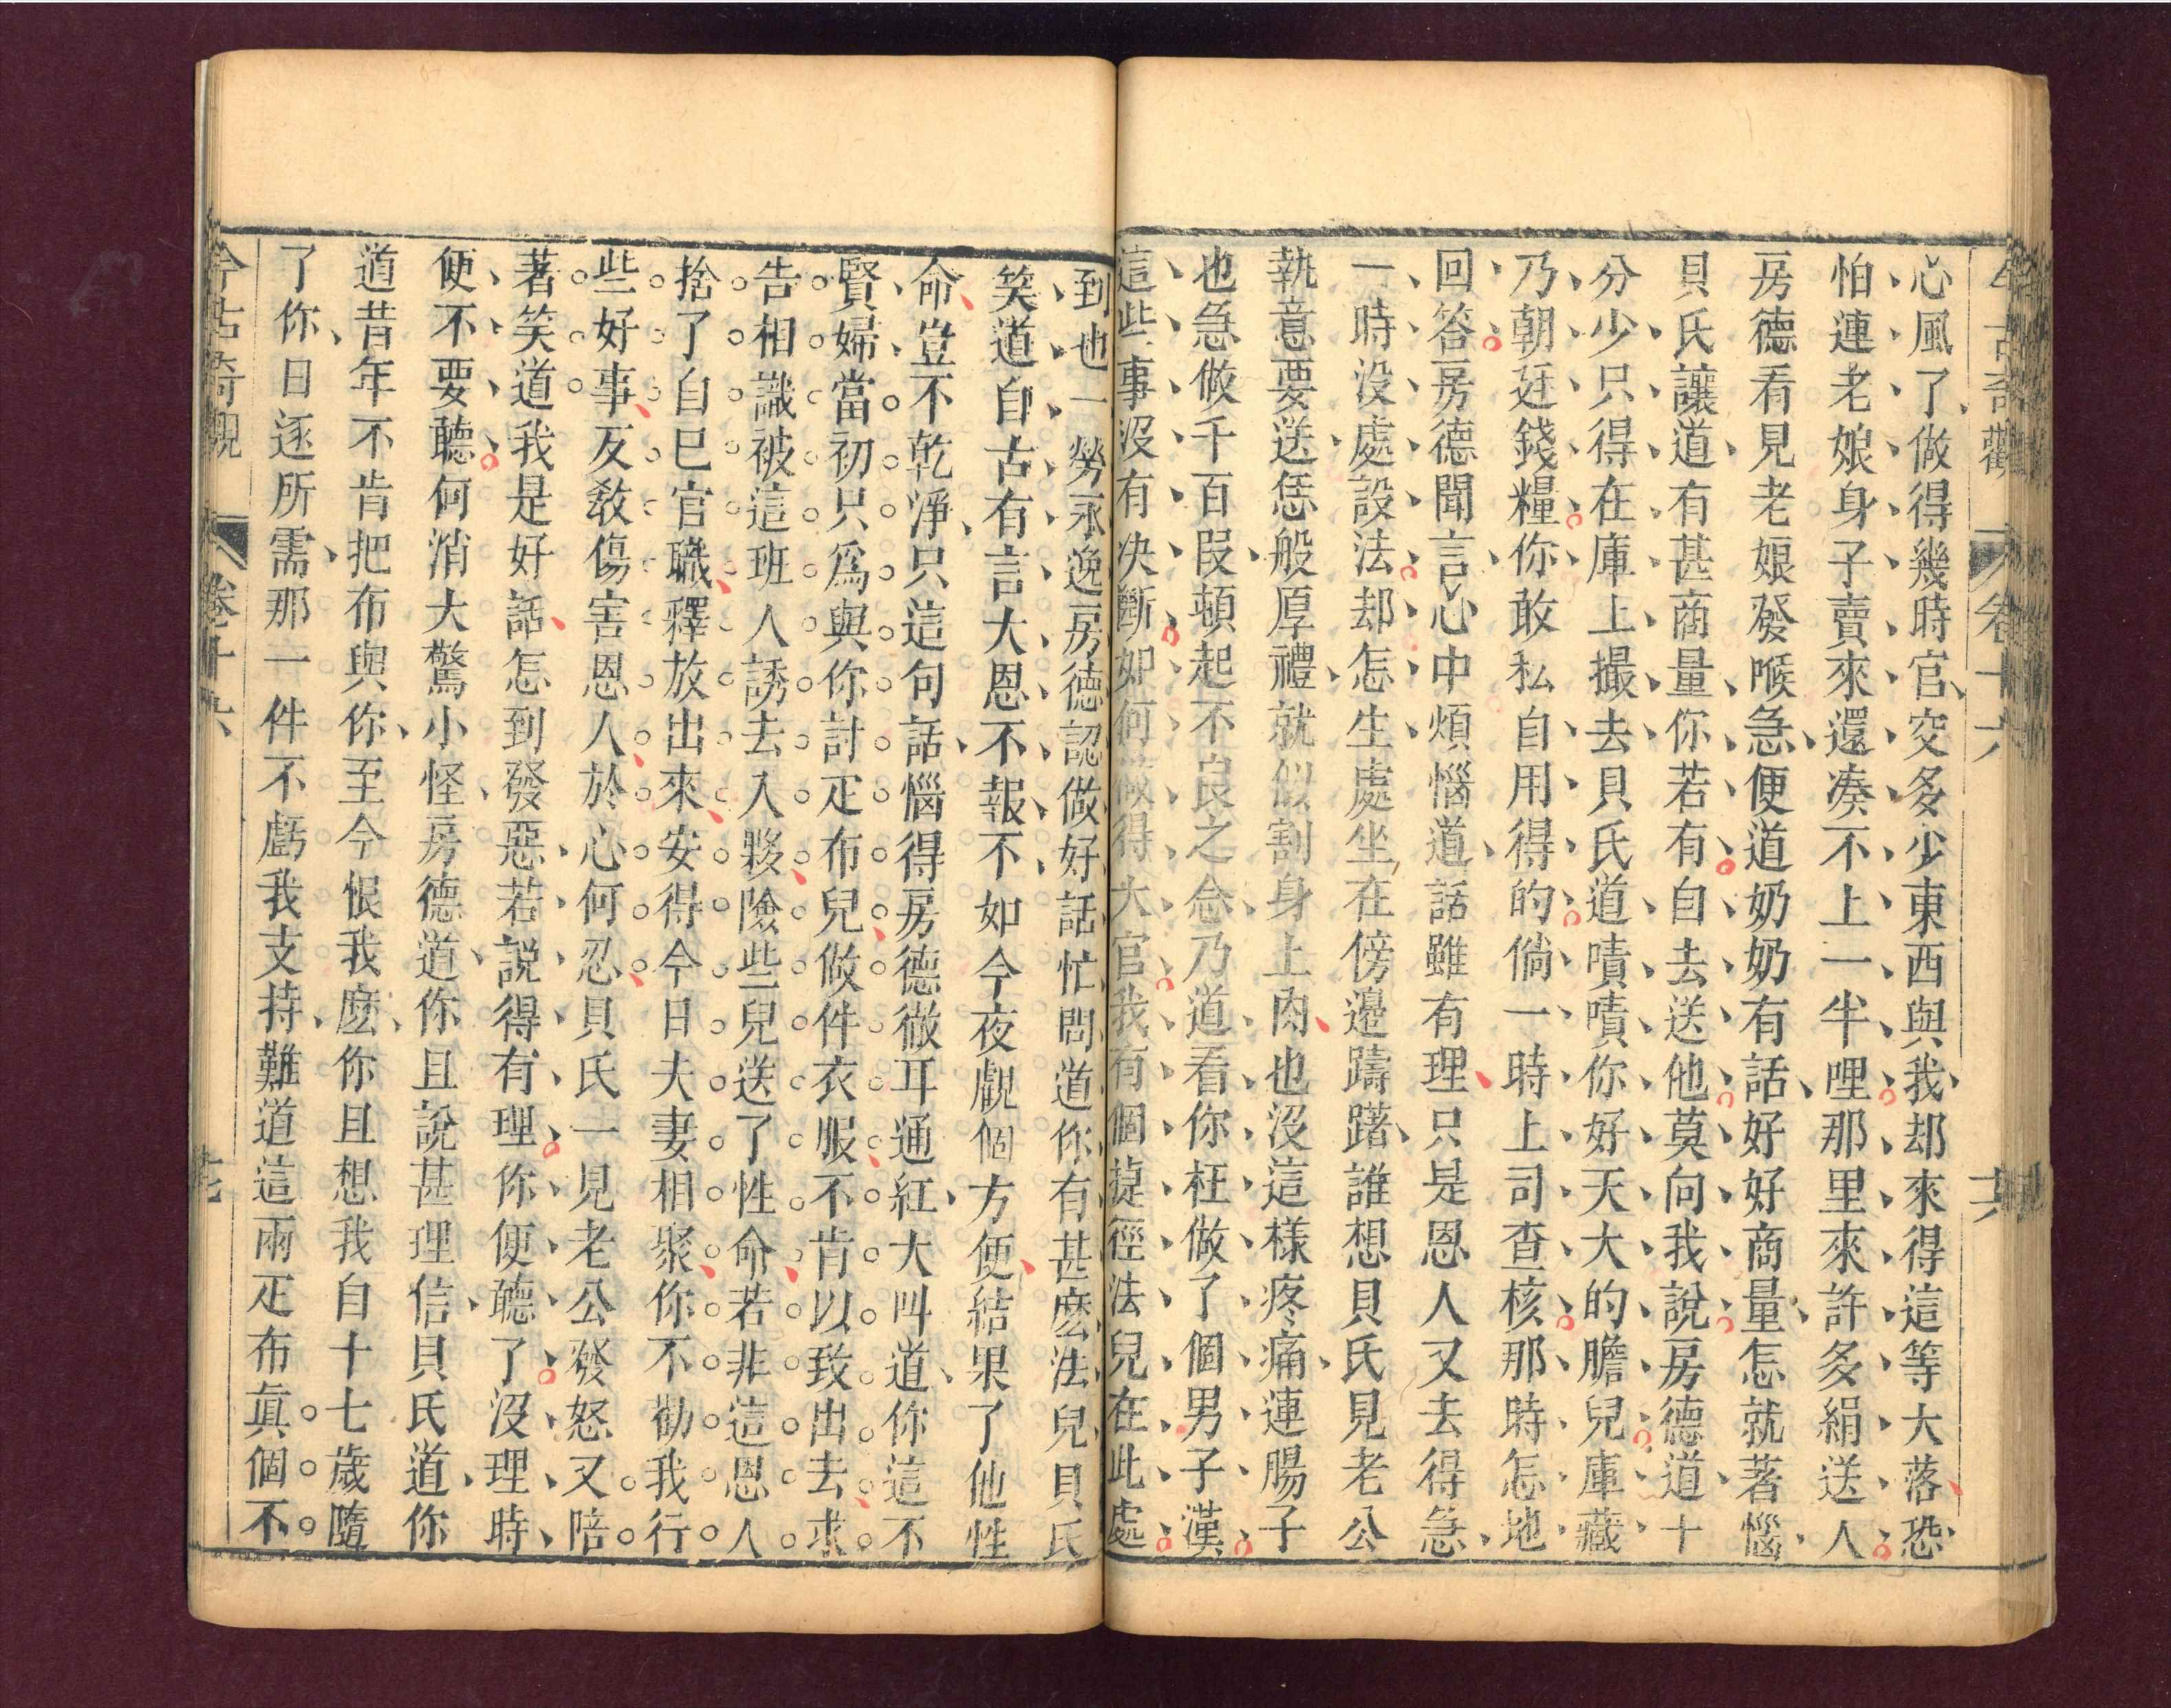 今古奇觀 卷十六 十六
心風了做得幾時官交多少東西與我却來得這等大落恐
怕連老娘身子賣來還湊不上一半哩那里來許多絹送人
房德看見老娘發喉急便道奶奶有話好好商量怎就著惱
貝氏讓道有甚商量你若有自去送他莫向我說房德道十
分少只得在庫上撮去貝氏道嘖嘖你好天大的膽兒庫藏
乃朝廷錢糧你敢私自用得的倘一時上司查核那時怎地
回答房德聞言心中煩惱道話雖有理只是恩人又去得急
一時没處設法却怎生處坐在傍邊躊躇誰想貝氏見老公
執意要送恁般厚禮就似割身上肉也沒這樣疼痛連腸子
也急做千百段頓起不良之念乃道看你枉做了個男子漢
這些事没有决斷如何做得大官我有個㨗徑法兒在此處
到也一勞永逸房德認做好話忙問道你有甚麽法兒貝氏
笑道自古有言大恩不報不如今夜覷個方便結果了他性
命豈不乾淨只這句話惱得房德徹耳通紅大叫道你這不
賢婦當初只爲與你討疋布兒做件衣服不肯以致出去求
告相識被這班人誘去入夥險些兒送了性命若非這恩人
捨了自已官職釋放出來安得今日夫妻相聚你不勸我行
些好事反教傷害恩人於心何忍貝氏一見老公發怒又陪
著笑道我是好話怎到發惡若説得有理你便聽了沒理時
便不要聽何消大驚小怪房德道你且說甚理信貝氏道你
道昔年不肯把布與你至今恨我麽你且想我自十七歲隨
了你日逐所需那一件不虧我支持難道這兩疋布眞個不
今古奇觀 卷十六 十七